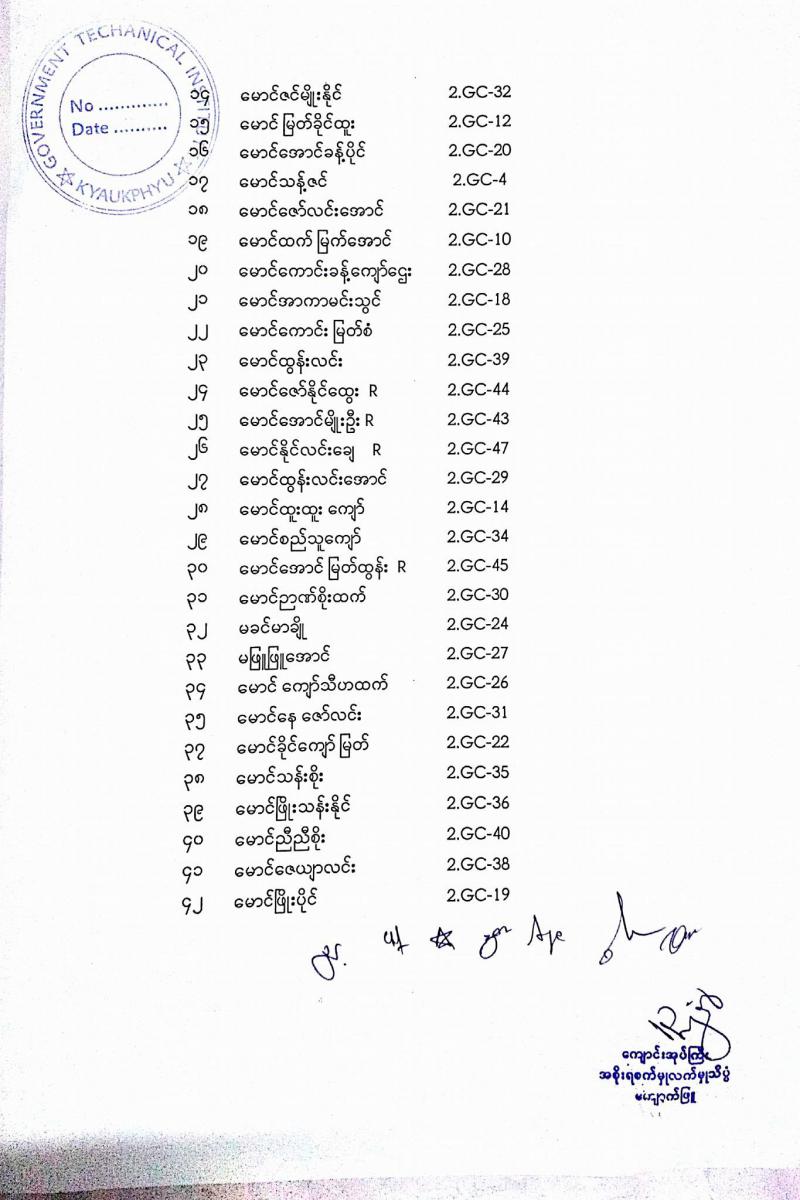 GOVERNMENT TECHANICAL INSTITUTE
No .............
Date ..........
KYAUKPHYU
၁၄ မောင်ဇင်မျိုးနိုင် 2.GC-32
၁၅ မောင် မြတ်ခိုင်ထူး 2.GC-12
၁၆ မောင်အောင်ခန့်ပိုင် 2.GC-20
၁၇ မောင်သန့်ဇင် 2.GC-4
၁၈ မောင်ဇော်လင်းအောင် 2.GC-21
၁၉ မောင်ထက် မြက်အောင် 2.GC-10
၂၀ မောင်ကောင်းခန့်ကျော်ဌေး 2.GC-28
၂၁ မောင်အာကာမင်းသွင် 2.GC-18
၂၂ မောင်ကောင်း မြတ်စံ 2.GC-25
၂၃ မောင်ထွန်းလင်း 2.GC-39
၂၄ မောင်ဇော်နိုင်ထွေး R 2.GC-44
၂၅ မောင်အောင်မျိုးဦး R 2.GC-43
၂၆ မောင်နိုင်လင်းချေ R 2.GC-47
၂၇ မောင်ထွန်းလင်းအောင် 2.GC-29
၂၈ မောင်ထူးထူး ကျော် 2.GC-14
၂၉ မောင်စည်သူကျော် 2.GC-34
၃၀ မောင်အောင် မြတ်ထွန်း R 2.GC-45
၃၁ မောင်ဉာဏ်စိုးထက် 2.GC-30
၃၂ မခင်မာချို 2.GC-24
၃၃ မဖြူဖြူအောင် 2.GC-27
၃၄ မောင် ကျော်သီဟထက် 2.GC-26
၃၅ မောင်နေ ဇော်လင်း 2.GC-31
၃၇ မောင်ခိုင်ကျော် မြတ် 2.GC-22
၃၈ မောင်သန်းစိုး 2.GC-35
၃၉ မောင်ဖြိုးသန်းနိုင် 2.GC-36
၄၀ မောင်ညီညီစိုး 2.GC-40
၄၁ မောင်ဇေယျာလင်း 2.GC-38
၄၂ မောင်ဖြိုးပိုင် 2.GC-19
ကျောင်းအုပ်ကြီး
အစိုးရစက်မှုလက်မှုသိပ္ပံ
ကျောက်ဖြူ